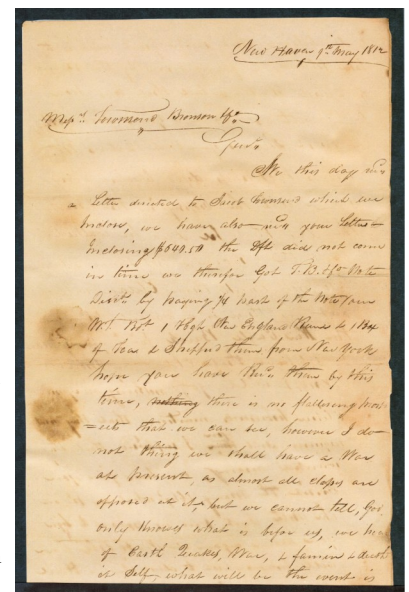 New Haven 9th May 1812
Mess. Townsend Bronson & Co
Gents
We this day recd
a Letter directed to Jacob Townsend which we
Inclose, we have also recd your Letter
Enclosing $549.50 the Dft did not come
in time we therefor Got T. B. & Co Note
Discd by paying part of the Note
Bot 1 Hhgd New England Rum & 1 Box
of Teas & Shipped them from New York
hope you have Recd them by this
time, nothing there is no flattering pros
=ects that we can see, however I do
not thing we shall have a War
at present, as almost all classes are
opposed at it, but we cannot tell, God
only knows what is before us, we h
of Earth Quakes, War, & famine & death
it Self, what will be the event is